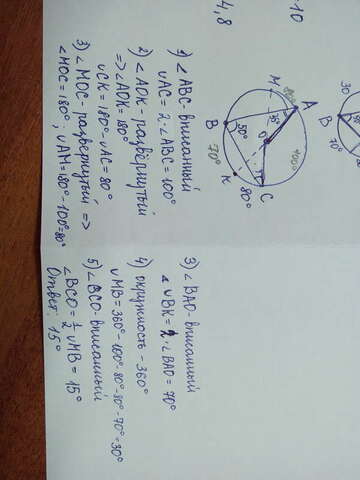 1) ∠ABC-вписанный
∪AC = 2·∠ABC = 100°
2) ∠AOK-развёрнутый
=> ∠AOK = 180°
∪CK = 180°, ∪AC = 80°
3) ∠MOC-развернутый =>
∠MOC = 180°; ∪AM = 180° - 100° = 80°
3) ∠BAO-вписанный
∪BK = 2·∠BAO = 70°
4) окружность - 360°
∪MB = 360° - 100° - 80° - 80° - 70° = 30°
5) ∠BCO-вписанный
∠BCO = 1/2 ∪MB = 15°
Ответ: 15°
M
80°
A
35°
B
50°
O
100°
70°
K
80°
C
4,8
-10
30
B
70°